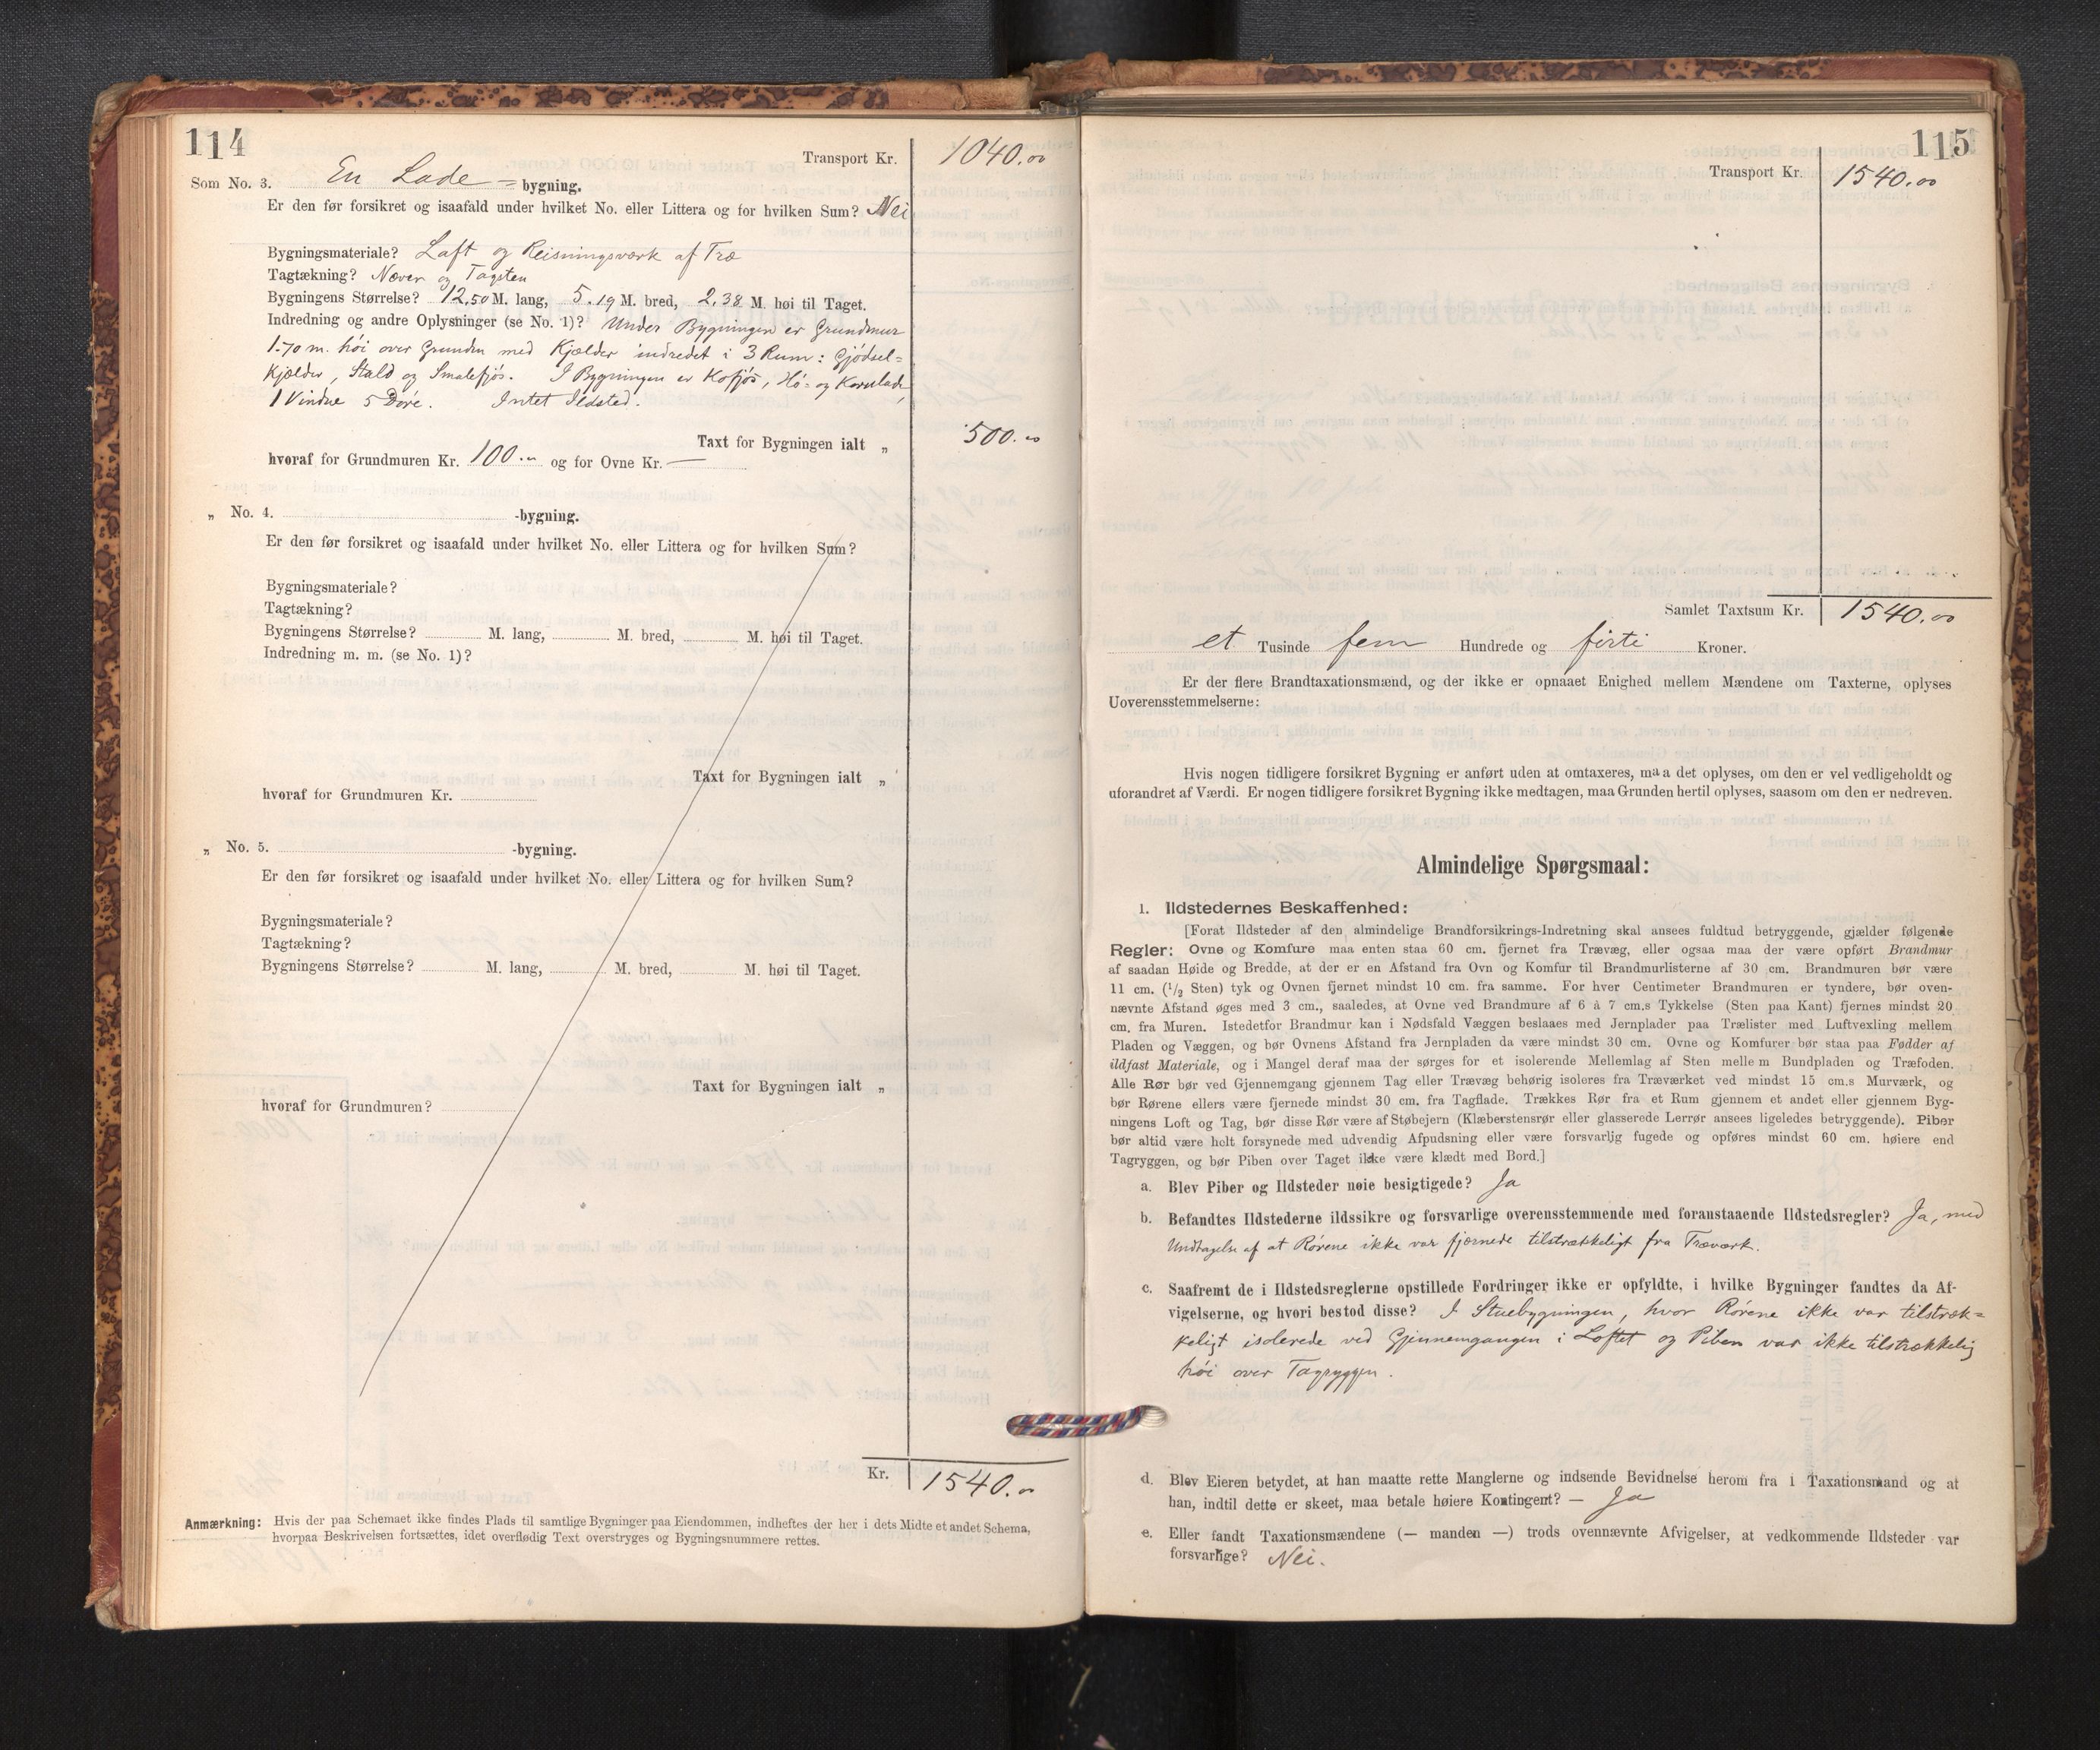 114
Transport Kr. 1040.00
Som No. 3. En Lade = bygning.
Er den før forsikret og isaafald under hvilket No. eller Littera og for hvilken Sum? Nei
Bygningsmateriale? Laft og Reisningsværk af Træ
Tagtækning? Næver og Tagsten
Bygningens Størrelse? 12,50 M. lang, 5.19 M. bred, 2,38 M. høi til Taget.
Indredning og andre Oplysninger (se No. 1)? Under Bygningen er Grundmur
1.70 m. høi over Grunden med Kjælder indredet i 3 Rum: Gjødsel=
kjælder, Stald og Smalefjøs. I Bygningen er Kofjøs, Hø- og Kornlade,
1 Vindue 5 Døre. Intet Ildsted.
Taxt for Bygningen ialt „ 500.00
hvoraf for Grundmuren Kr. 100.00 og for Ovne Kr. —
„ No. 4. -bygning.
Er den før forsikret og isaafald under hvilket No. eller Littera og for hvilken Sum?
Bygningsmateriale?
Tagtækning?
Bygningens Størrelse? M. lang, M. bred, M. høi til Taget.
Indredning m. m. (se No. 1)?
Taxt for Bygningen ialt „
hvoraf for Grundmuren Kr.
„ No. 5. -bygning.
Er den før forsikret og isaafald under hvilket No. eller Littera og for hvilken Sum?
Bygningsmateriale?
Tagtækning?
Bygningens Størrelse? M. lang, M. bred, M. høi til Taget.
Taxt for Bygningen ialt „
hvoraf for Grundmuren?
Kr. 1540.00
Anmærkning: Hvis der paa Schemaet ikke findes Plads til samtlige Bygninger paa Eiendommen, indheftes der her i dets Midte et andet Schema,
hvorpaa Beskrivelsen fortsættes, idet overflødig Text overstryges og Bygningsnummere rettes.
115
Transport Kr. 1540.00
Samlet Taxtsum Kr. 1540.00
et Tusinde fem Hundrede og firti Kroner.
Er der flere Brandtaxationsmænd, og der ikke er opnaaet Enighed mellem Mændene om Taxterne, oplyses
Uoverensstemmelserne:
Hvis nogen tidligere forsikret Bygning er anført uden at omtaxeres, maa det oplyses, om den er vel vedligeholdt og
uforandret af Værdi. Er nogen tidligere forsikret Bygning ikke medtagen, maa Grunden hertil oplyses, saasom om den er nedreven.
Almindelige Spørgsmaal:
1. Ildstedernes Beskaffenhed:
[Forat Ildsteder af den almindelige Brandforsikrings-Indretning skal ansees fuldtud betryggende, gjælder følgende
Regler: Ovne og Komfure maa enten staa 60 cm. fjernet fra Trævæg, eller ogsaa maa der være opført Brandmur
af saadan Høide og Bredde, at der er en Afstand fra Ovn og Komfur til Brandmurlisterne af 30 cm. Brandmuren bør være
11 cm. (1/2 Sten) tyk og Ovnen fjernet mindst 10 cm. fra samme. For hver Centimeter Brandmuren er tyndere, bør oven-
nævnte Afstand øges med 3 cm., saaledes, at Ovne ved Brandmure af 6 à 7 cm.s Tykkelse (Sten paa Kant) fjernes mindst 20
cm. fra Muren. Istedetfor Brandmur kan i Nødsfald Væggen beslaaes med Jernplader paa Trælister med Luftvexling mellem
Pladen og Væggen, og bør Ovnens Afstand fra Jernpladen da være mindst 30 cm. Ovne og Komfurer bør staa paa Fødder af
ildfast Materiale, og i Mangel deraf maa der sørges for et isolerende Mellemlag af Sten mellem Bundpladen og Træfoden.
Alle Rør bør ved Gjennemgang gjennem Tag eller Trævæg behørig isoleres fra Træværket ved mindst 15 cm.s Murværk, og
bør Rørene ellers være fjernede mindst 30 cm. fra Tagflade. Trækkes Rør fra et Rum gjennem et andet eller gjennem Byg-
ningens Loft og Tag, bør disse Rør være af Støbejern (Klæberstensrør eller glasserede Lerrør ansees ligeledes betryggende). Piber
bør altid være helt forsynede med udvendig Afpudsning eller være forsvarljg fugede og opføres mindst 60 cm. høiere end
Tagryggen, og bør Piben over Taget ikke være klædt med Bord.]
a. Blev Piber og Ildsteder nøie besigtigede? Ja
b. Befandtes Ildstederne ildssikre og forsvarlige overensstemmende med foranstaaende Ildstedsregler? Ja, med
Undtagelse af at Rørene ikke var fjernede tilstrækkeligt fra Træværk.
c. Saafremt de i Ildstedsreglerne opstillede Fordringer ikke er opfyldte, i hvilke Bygninger fandtes da Af-
vigelserne, og hvori bestod disse? I Stuebygningen, hvor Rørene ikke var tilstræk=
keligt isolerede ved Gjennemgangen i Loftet og Piben var ikke tilstrækkelig
høi over Tagryggen.
d. Blev Eieren betydet, at han maatte rette Manglerne og indsende Bevidnelse herom fra 1 Taxationsmand og at
han, indtil dette er skeet, maa betale høiere Kontingent? — Ja
e. Eller fandt Taxationsmændene (— manden —) trods ovennævnte Afvigelser, at vedkommende Ildsteder var
forsvarlige? Nei.